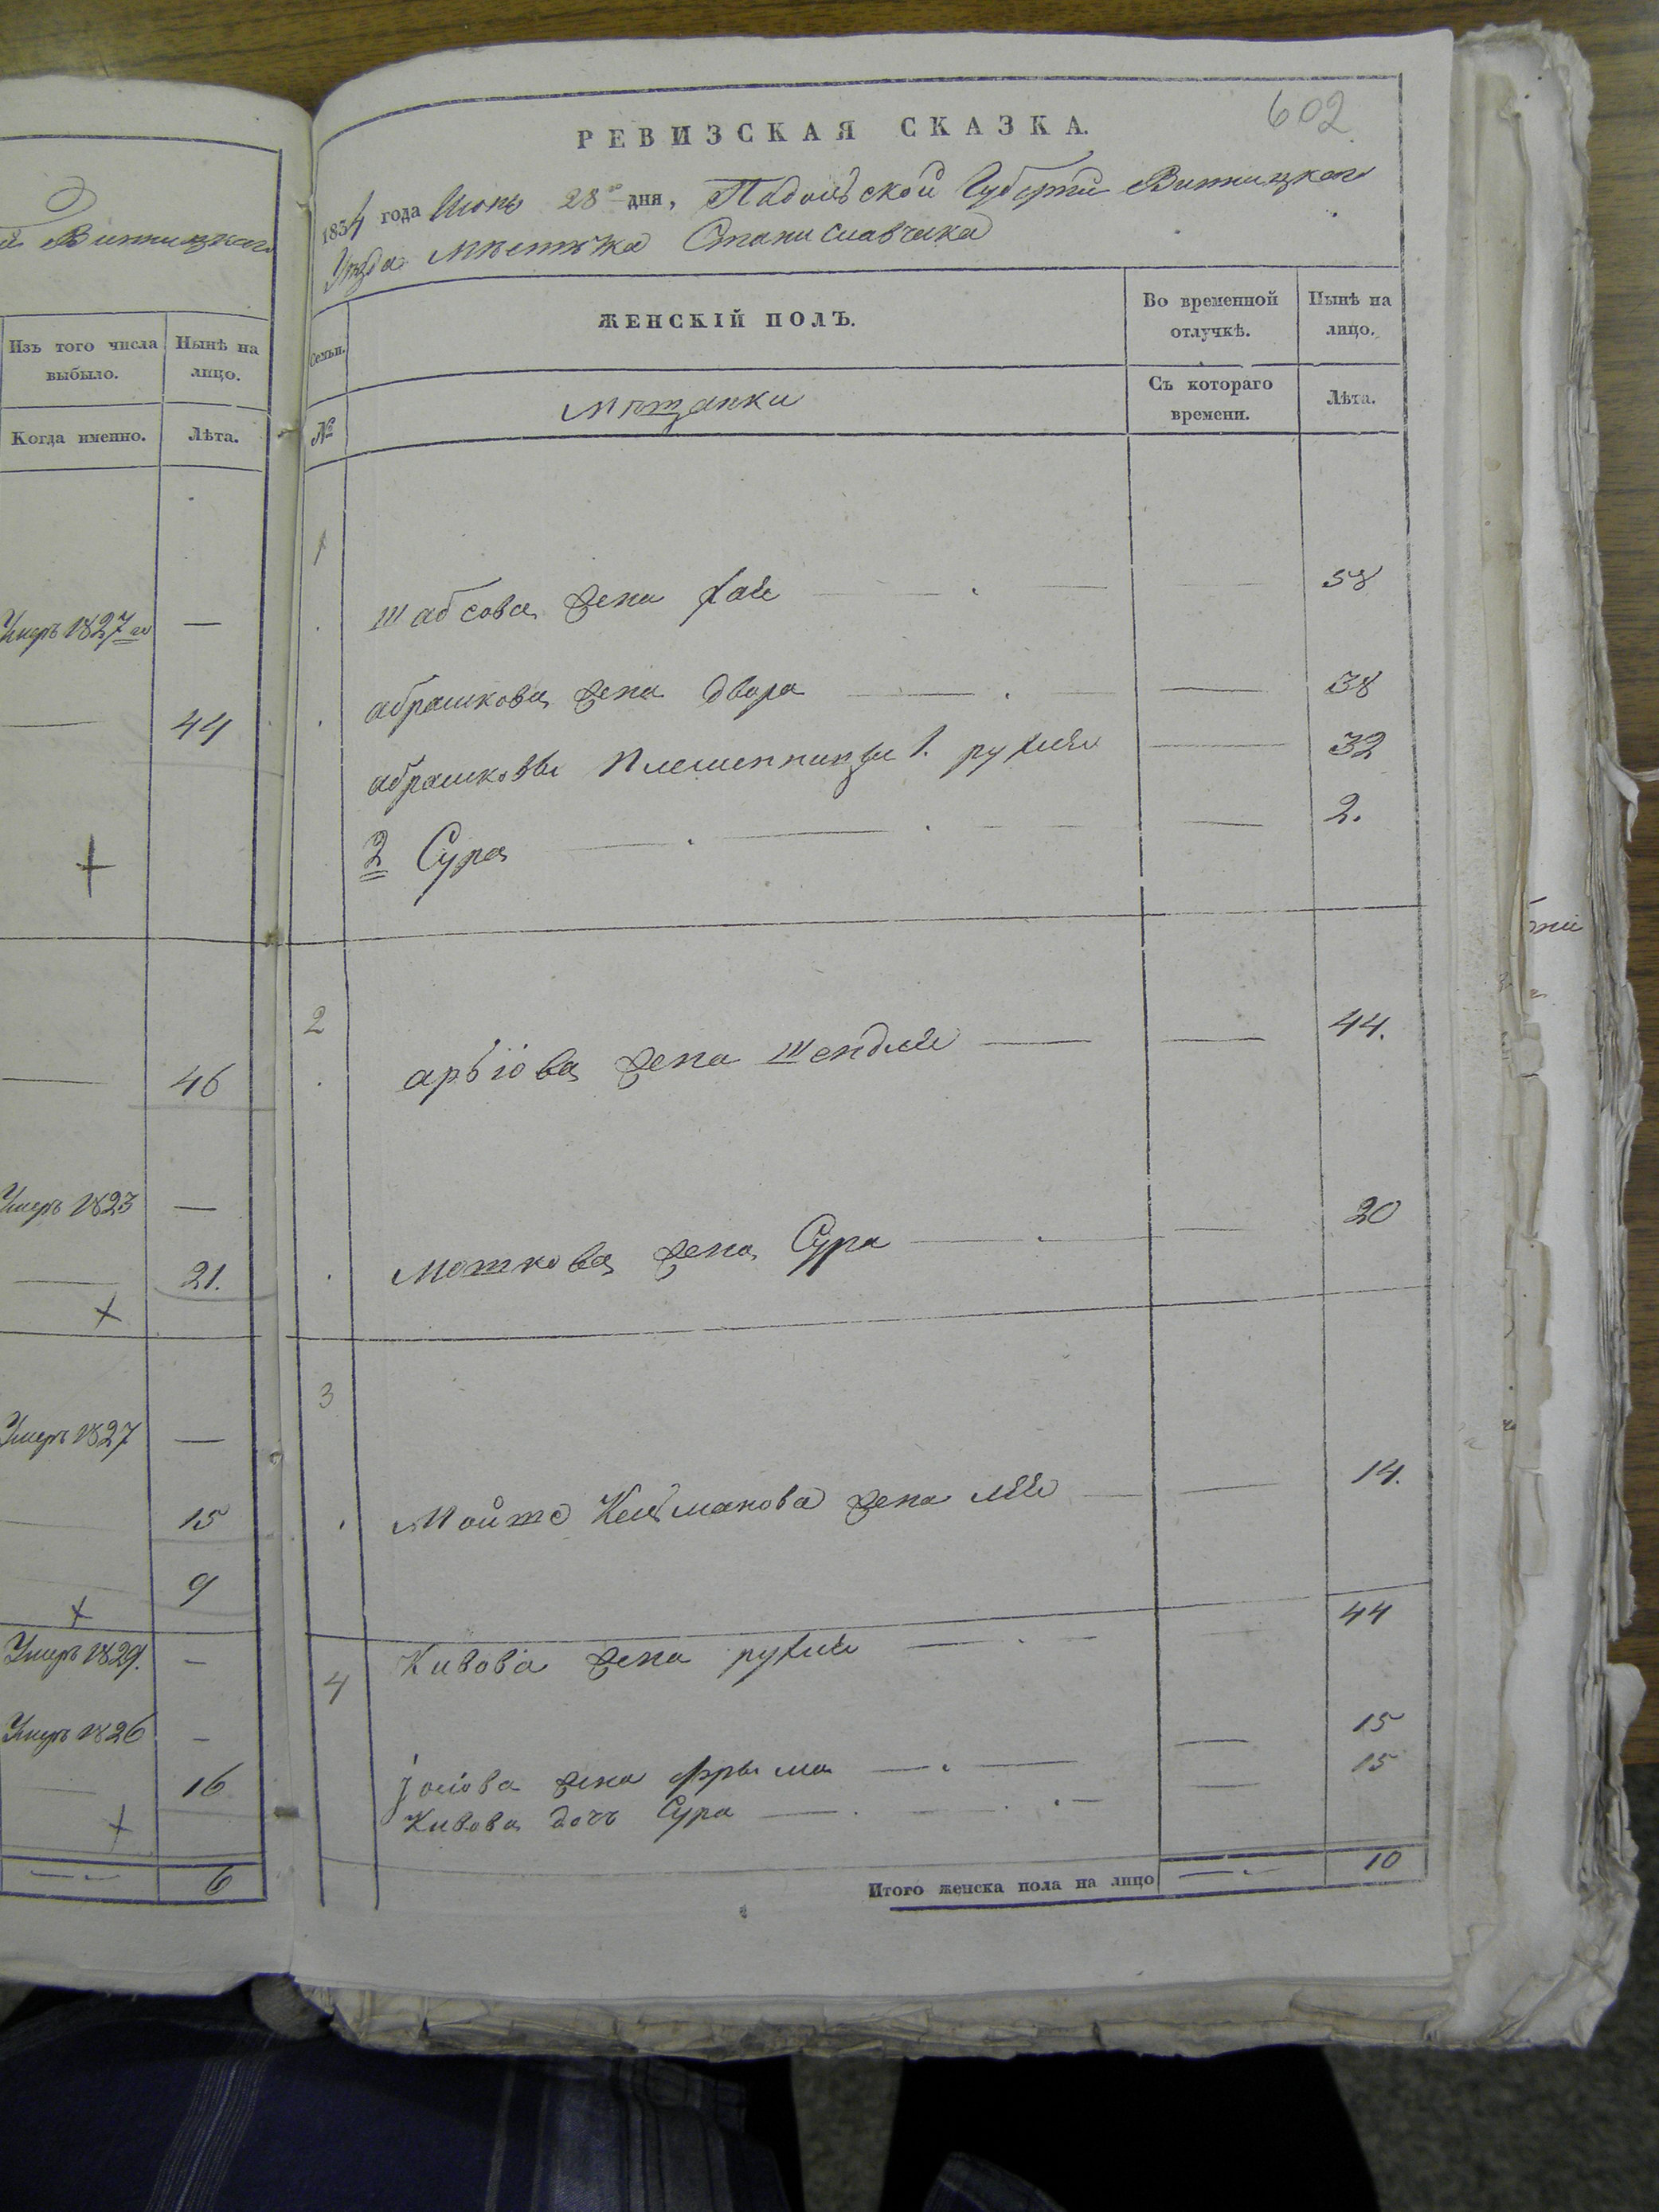 й Винницкаго
Изъ того числа выбыло.
Нынѣ на лицо.
Когда именно.
Лѣта.
Умеръ 1827 го —
— 44
— 46
Умеръ 1823 —
— 21.
Умеръ 1827 —
15
9
Умеръ 1829. —
Умеръ 1826 —
— 16
6
602
РЕВИЗСКАЯ СКАЗКА.
1834 года Июнь 28го дня, Подольской Губерти Винницкаго
Уѣзда Мѣстѣчка Станиславчика
Семьи.
ЖЕНСКІЙ ПОЛЪ.
Во временной отлучкѣ.
Нынѣ на лицо.
№
Мѣщанки
Съ котораго времени.
Лѣта.
1
Шабсова жена хая — — 58
абрашкова жена двора — — 38
абрашковы племенницы 1. рухля — 32
2 Сура — — 2.
2
арьіова жена шендля — — 44.
Мошкова жена Сура — — 20
3
Мошко Кельманова жена лея — — 14.
4
Кивова жена рухля — 44
іосіова жена фрыма — — 15
Кивова дочъ Сура — — 15
Итого женска пола на лицо — 10